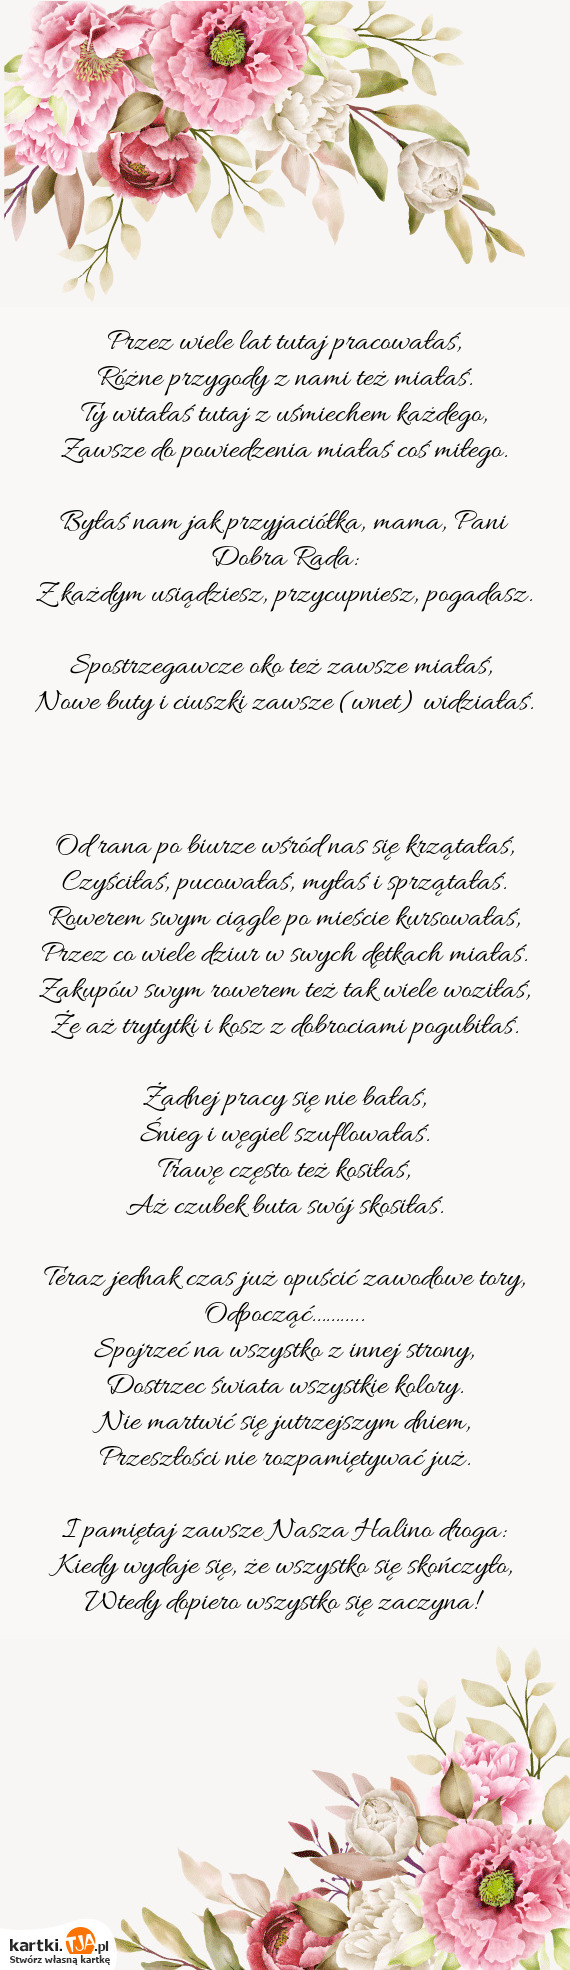 Przez wiele lat tutaj pracowałaś,
Różne przygody z nami też miałaś.
Ty witałaś tutaj z uśmiechem każdego,
Zawsze do powiedzenia miałaś coś miłego.
Byłaś nam jak przyjaciółka, mama, Pani
Dobra Rada:
Z każdym usiądziesz, przycupniesz, pogadasz.
Spostrzegawcze oko też zawsze miałaś,
Nowe buty i ciuszki zawsze (wnet) widziałaś.
Od rana po biurze wśród nas się krzątałaś,
Czyściłaś, pucowałaś, myłaś i sprzątałaś.
Rowerem swym ciągle po mieście kursowałaś,
Przez co wiele dziur w swych dętkach miałaś.
Zakupów swym rowerem też tak wiele woziłaś,
Że aż trytytki i kosz z dobrociami pogubiłaś.
Żadnej pracy się nie bałaś,
Śnieg i węgiel szuflowałaś.
Trawę często też kosiłaś,
Aż czubek buta swój skosiłaś.
Teraz jednak czas już opuścić zawodowe tory,
Odpocząć...........
Spojrzeć na wszystko z innej strony,
Dostrzec świata wszystkie kolory.
Nie martwić się jutrzejszym dniem,
Przeszłości nie rozpamiętywać już.
I pamiętaj zawsze Nasza Halino droga:
Kiedy wydaje się, że wszystko się skończyło,
Wtedy dopiero wszystko się zaczyna!
kartki.TJA.pl
Stwórz własną kartkę